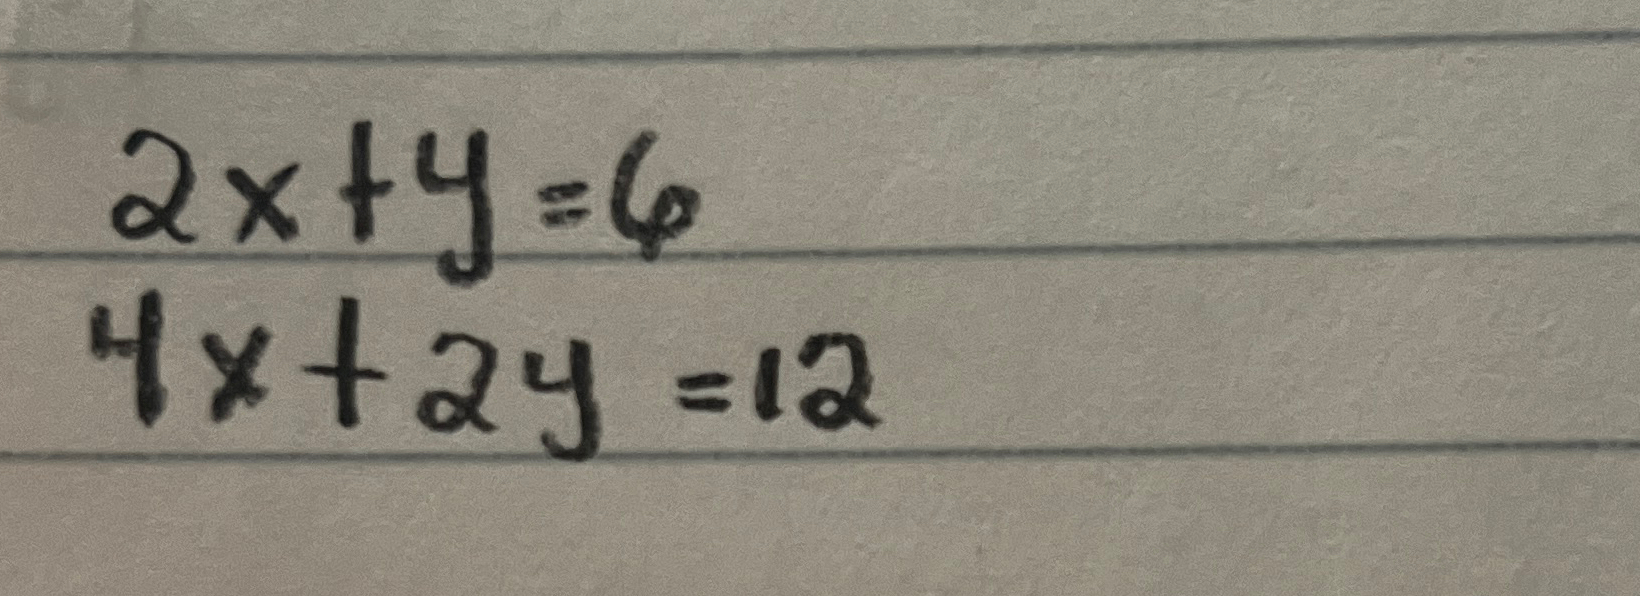 2x+y=6
4x+2y=12